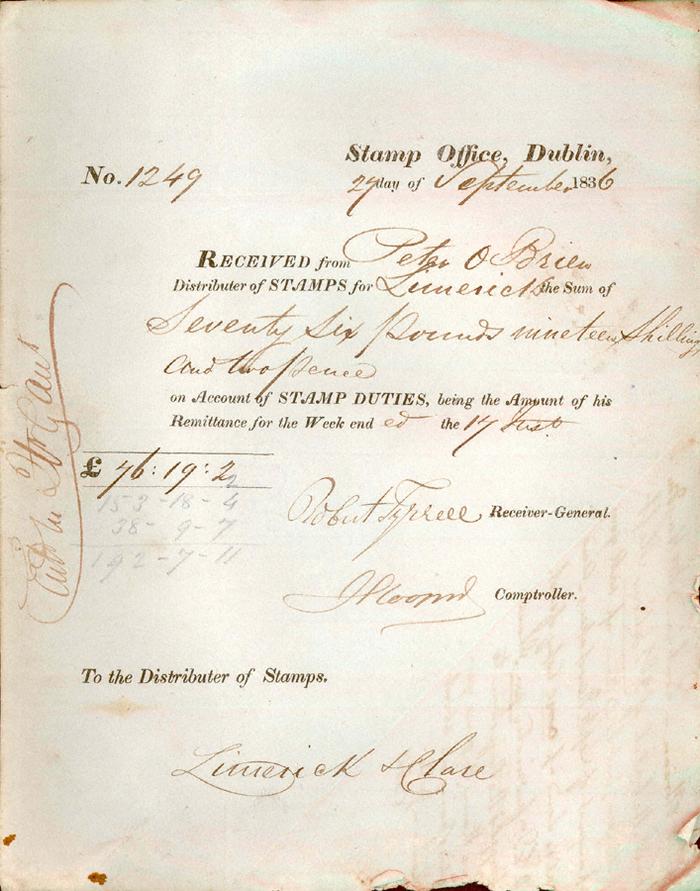 Stamp Office, Dublin,
No. 1249
27 day of September 1836
RECEIVED from Peter O Brien
Distributer of STAMPS for Limerick the Sum of
Seventy Six pounds nineteen Shillings
and twopence
on Account of STAMP DUTIES, being the Amount of his
Remittance for the Week end ed the 17 Inst
£ 76 : 19 : 2
153 - 18 - 4
38 - 9 - 7
192 - 7 - 11
Robert Tyrrell Receiver-General.
Comptroller.
To the Distributer of Stamps.
Limerick & Clare